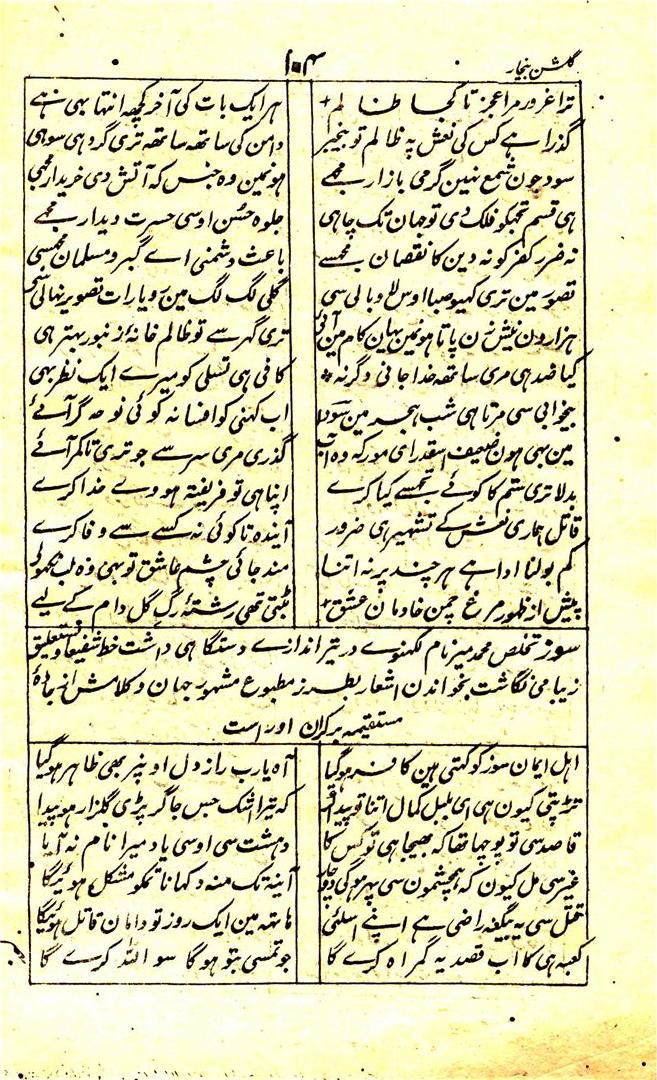 گلشن بیخار
۱۰۴
ترا غرور مرا عجز تا کجا ظالم + ہر ایک بات کی آخر کچھ انتہا بھی ہے
گذرا ہے کس کی نعش پہ ظالم تو بیخبر دامن کی ساتھ ساتھ تری گرد ہی سو ہی
سود جون شمع نہین گرمی بازار مجھے ہونمین وہ جنس کہ آتش دی خریدار مجھی
ہی قسم تجھکو فلک دی تو جہان تک چاہی جلوہ حسن اوسی حسرت دیدار مجھے
نہ ضرر کفر کو نہ دین کا نقصان مجھسے باعث دشمنی اے گبر و مسلمان مجھسی
تصور مین تری کہیو صبا اوس لا وبالی سی گلی لگ لگ مین رویا رات تصویر نہالی سی
ہزارون نیش زن پاتا ہونمین یہان کام مین آئی تری گہر سے تو ظالم خانۂ زنبور بہتر ہی
کیا ضد ہی مری ساتھ خدا جانی وگرنہ کافی ہی تسلی کو میرے ایک نظر بھی
بیخوابی سی مرتا ہی شب ہجر مین سودا اب کہنی کو افسانہ کوئی نوحہ گر آئے
مین بھی ہون ضعیف اسقدر ای مور کہ وہ آب گذری مری سر سے جو تری تا کمر آئے
بدلا تری ستم کا کوئے تجھسے کیا کرے اپنا ہی تو فریفتہ ہووے خدا کرے
قاتل ہماری نعش کے تشہیر ہی ضرور آیندہ تا کوئی نہ کسے سے وفا کرے
کم بولنا ادا ہے ہر چند پر نہ اتنا مند جائی چشم عاشق تو بھی وہ لب نکھولی
پیش از ظہور مرغ چمن خادمان عشق + بٹتی تھی رشتۂ رگ گل دام کے لیے
سوز تخلص محمد میر نام لکھنوے در تیر اندازے دستگاہی داشت خط شفیعا و نستعلیق
زیبا می نگاشت بخواندن اشعار بطرز مطبوع مشہور جہان و کلامش از جادۂ
مستقیمہ برکران اوراست
اہل ایمان سوز کو کہتی ہین کافر ہو گیا آہ یارب راز دل اونپر بھی ظاہر ہو گیا
تڑپتی کیون ہی ای بلبل کمال اتنا تو پیدا کر کہ تیرا اشک جس جا گر پڑی گلزار ہو پیدا
قاصد سی تو پوچھا تھا کہ بھیجا ہی تو کس کا دہشت سی اوسی یاد میرا نام نہ آیا
غیر سی مل کیون کہ ہمچشمون سی پھر ہوگی دوچار آینہ تک منہ دکھانا تجکو مشکل ہوئیگا
قتل سی یہ بیگنہ راضی ہے اپنے اسلئی ہاتھ مین ایک روز تو دامان قاتل ہوئیگا
کعبہ ہی کا اب قصد یہ گمراہ کرے گا جو تمسی بتو ہوگا سو اللہ کرے گا